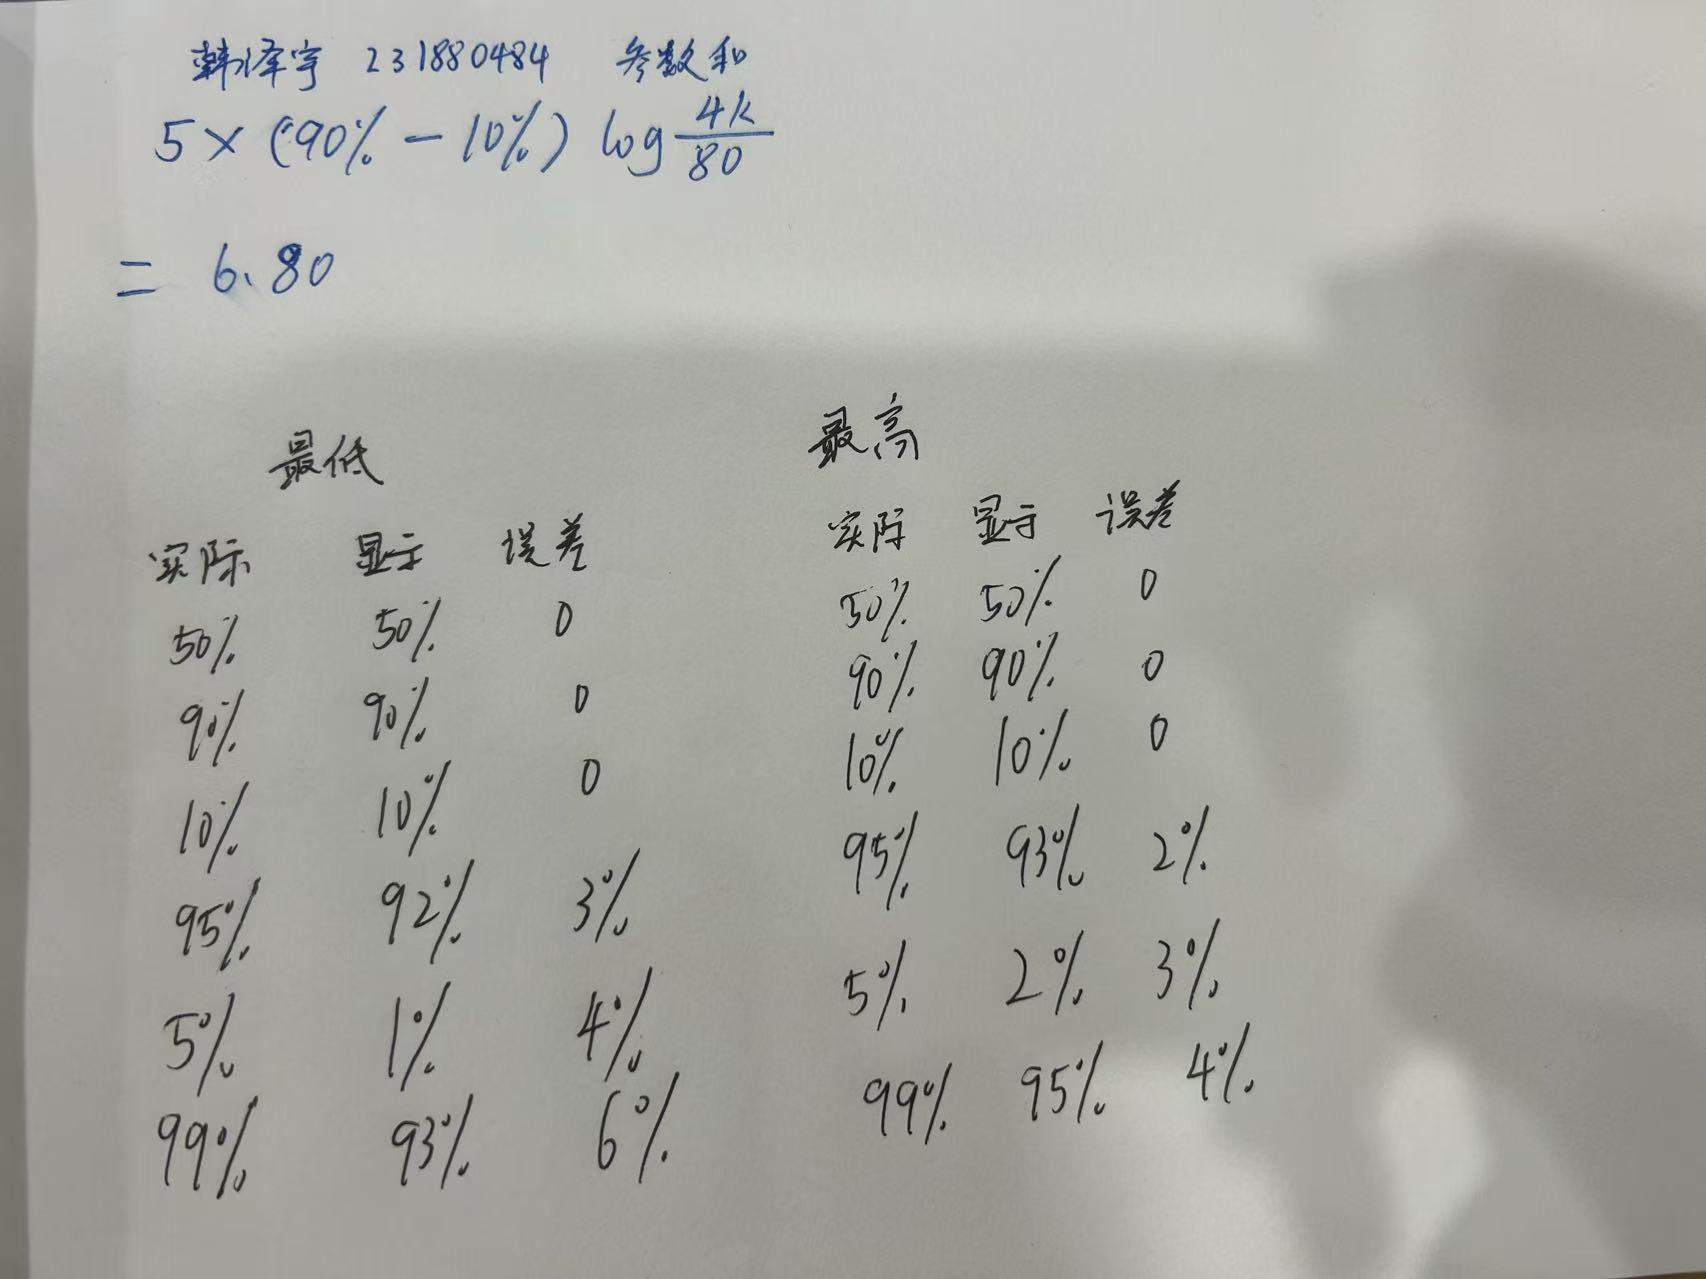 韩泽宇 231880484 参数和
5×(90%-10%) log 4k/80
= 6.80
最低
实际 显示 误差
50% 50% 0
90% 90% 0
10% 10% 0
95% 92% 3%
5% 1% 4%
99% 93% 6%
最高
实际 显示 误差
50% 50% 0
90% 90% 0
10% 10% 0
95% 93% 2%
5% 2% 3%
99% 95% 4%